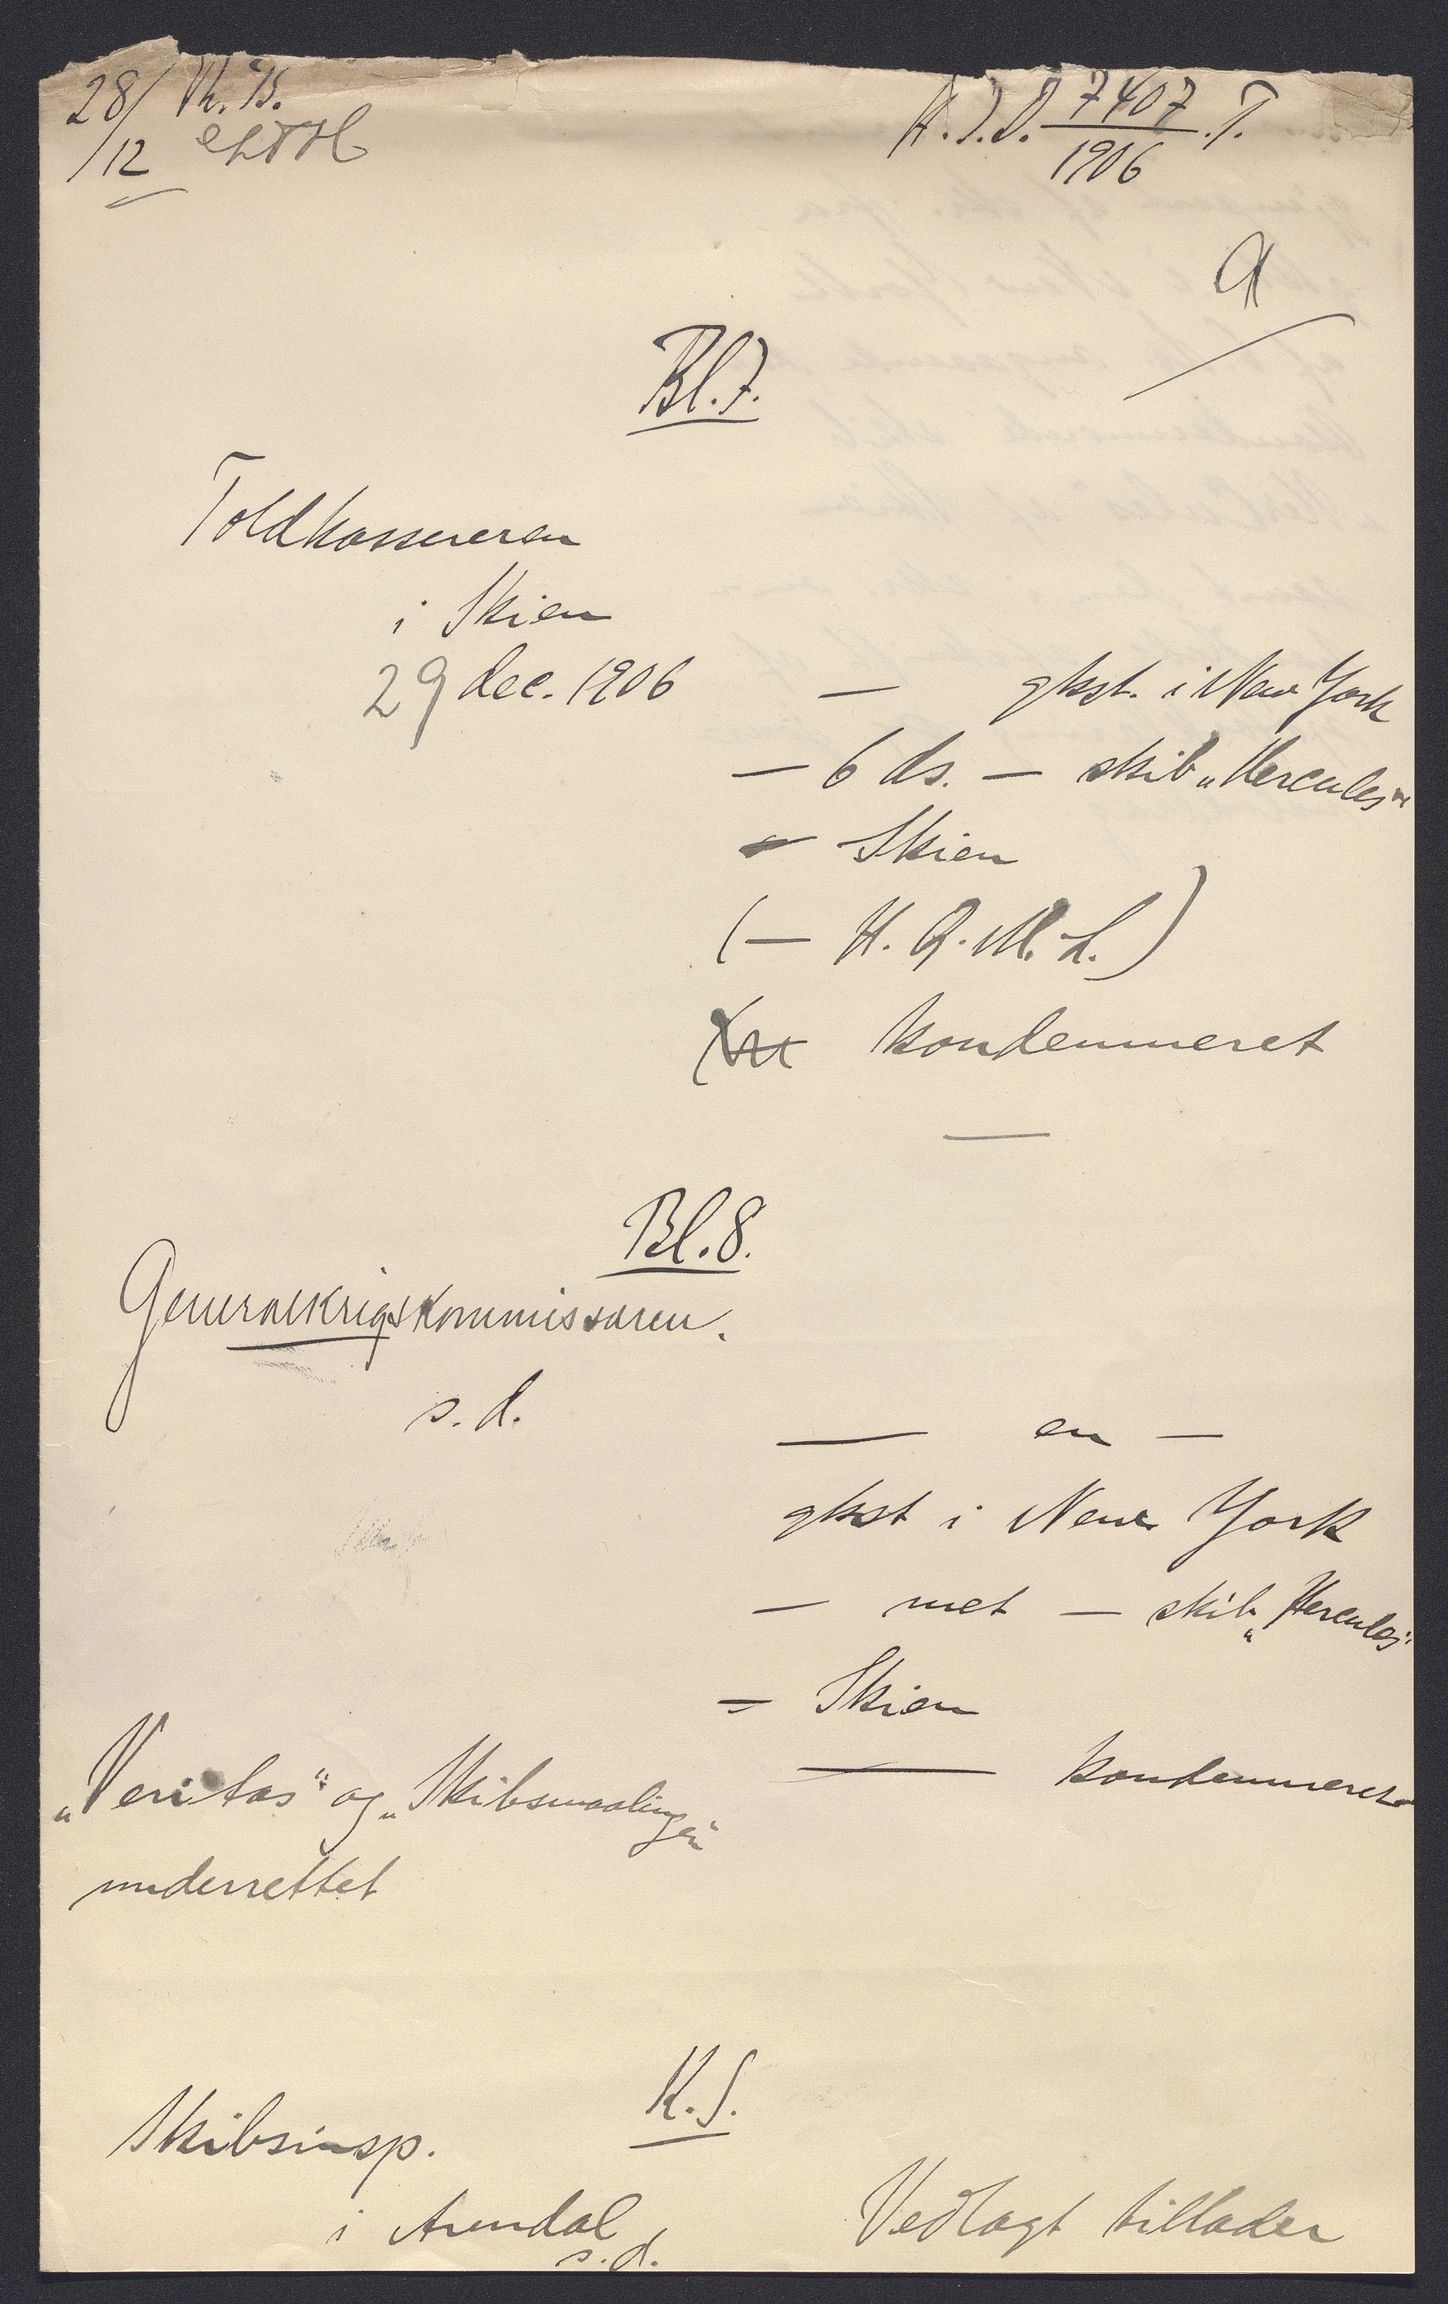 28/12 Th. B.
H. I. D. 7407/1906. T.
Bl. 7.
Toldkassereren
i Skien
29 dec. 1906
— gkst. i New York
— 6 ds. — skib „Hercules"
— Skien
(— H. Q. M. L.)
kondemneret
—
Bl. 8.
Generalkrigskommissæren.
s. d.
— en —
gkst i New York
— met — skib „Hercules"
= Skien
— kondemneret
„Veritas" og „Skibsmaalingen"
underrettet
K. S.
Skibsinsp.
i Arendal
s. d.
Vedlagt tillader